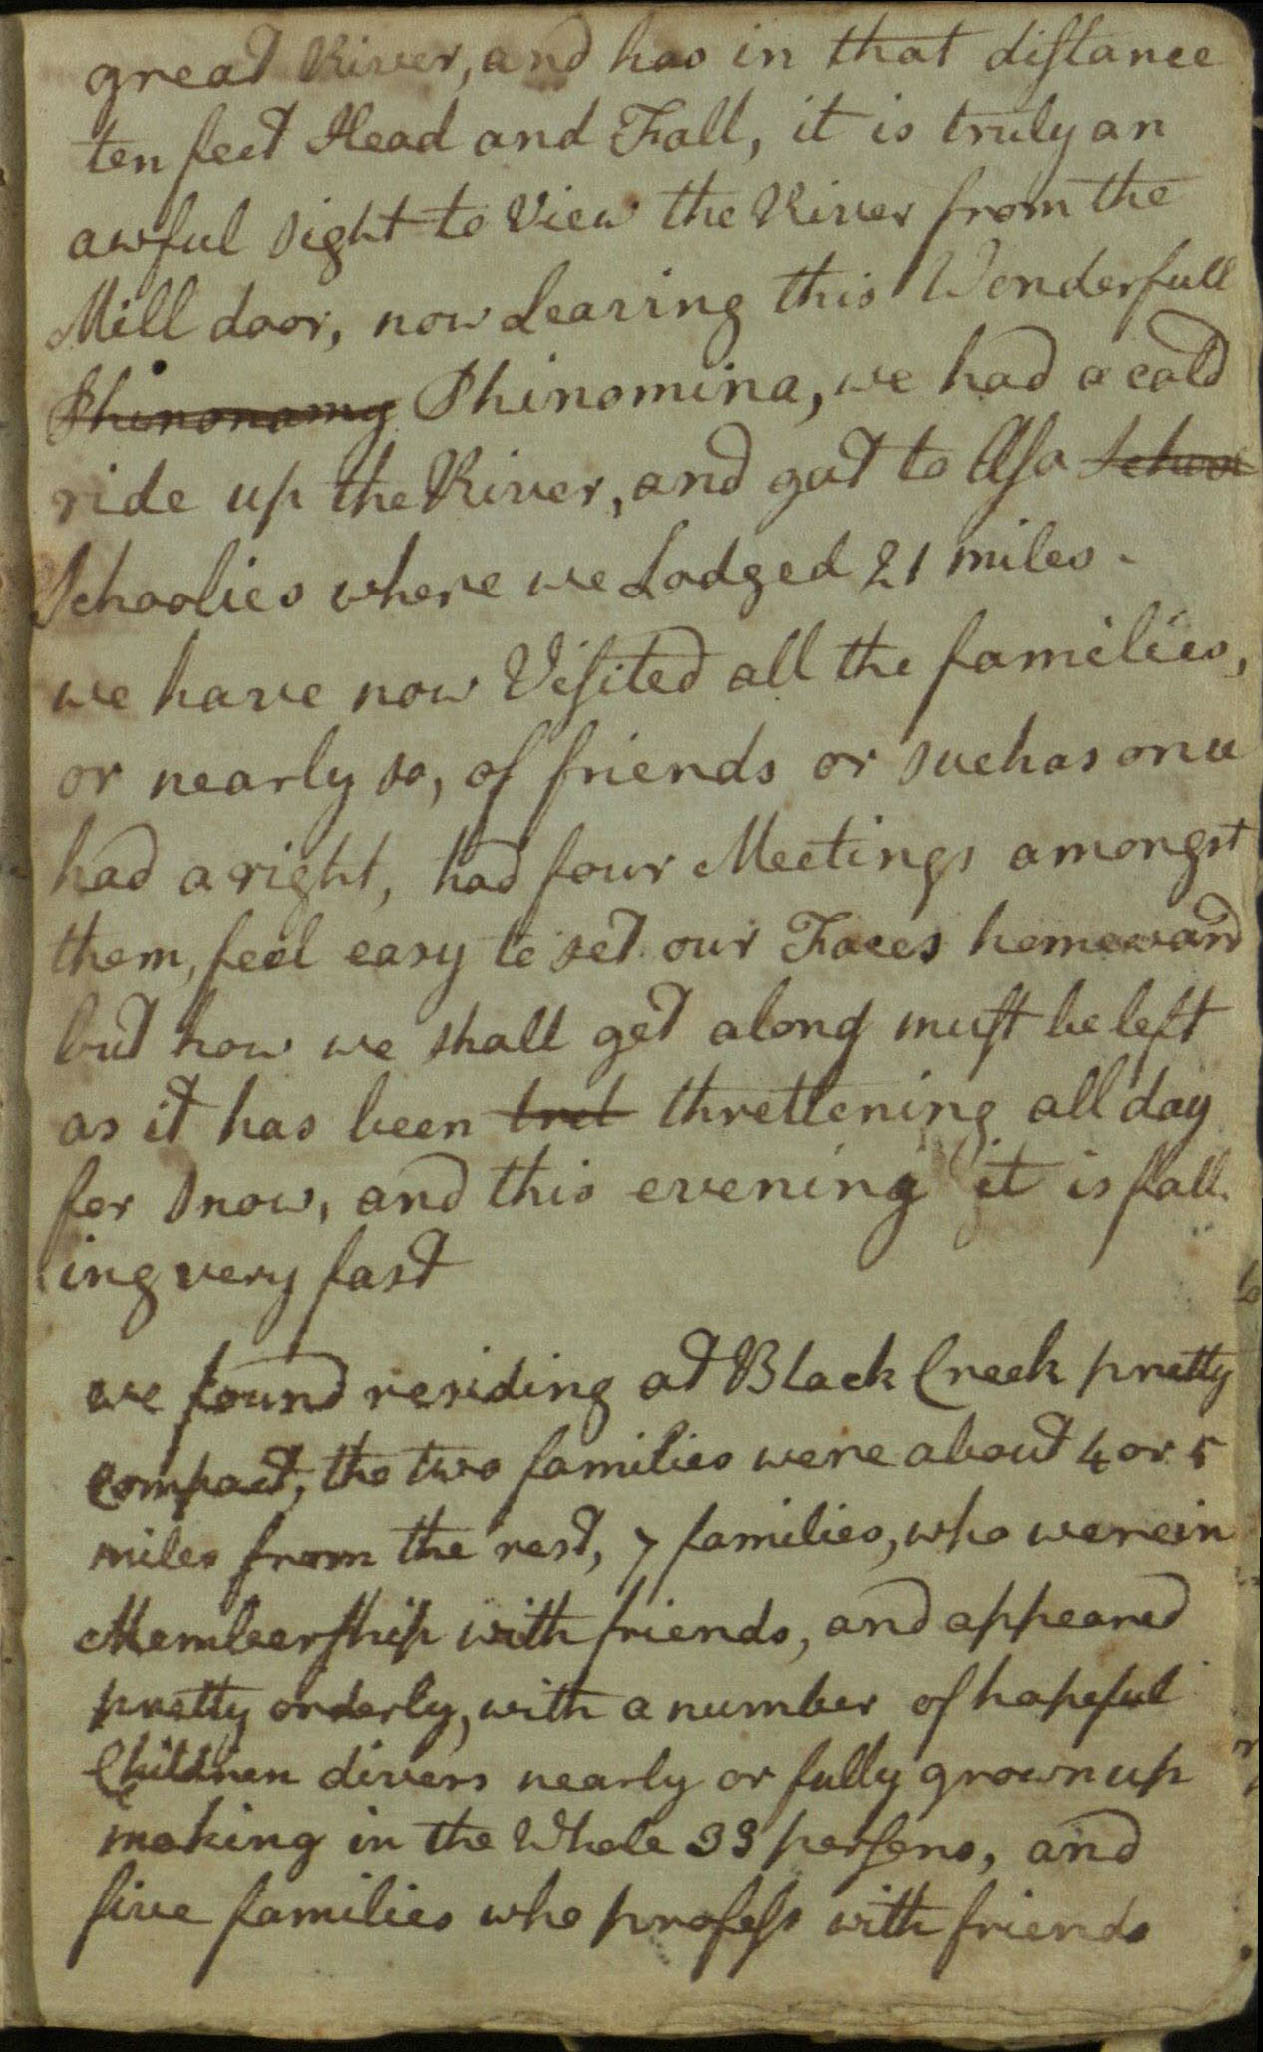 great River, and has in that distance
ten feet Head and Fall, it is truly an
awful sight to View the River from the
Mill door, now Leaving this Wonderfull
Phinonamy Phinomina, we had a cold
ride up the River, and got to Asa Schoo
Schoolies where we Lodged 21 miles.
we have now Visited all the families,
or nearly so, of friends or such as on u
had a right, had four Meetings amongst
them, feel easy to set our Faces homeward
but how we shall get along must be left
as it has been tret threttening all day
for Snow, and this evening it is fall
ing very fast
we found residing at Black Creek pretty
compact, the two families were about 4 or 5
miles from the rest, 7 families, who were in
Membeership with friends, and appeared
pretty orderly, with a number of hopeful
Children divers nearly or fully grown up
making in the Whole 33 persons, and
five families who profess with friends